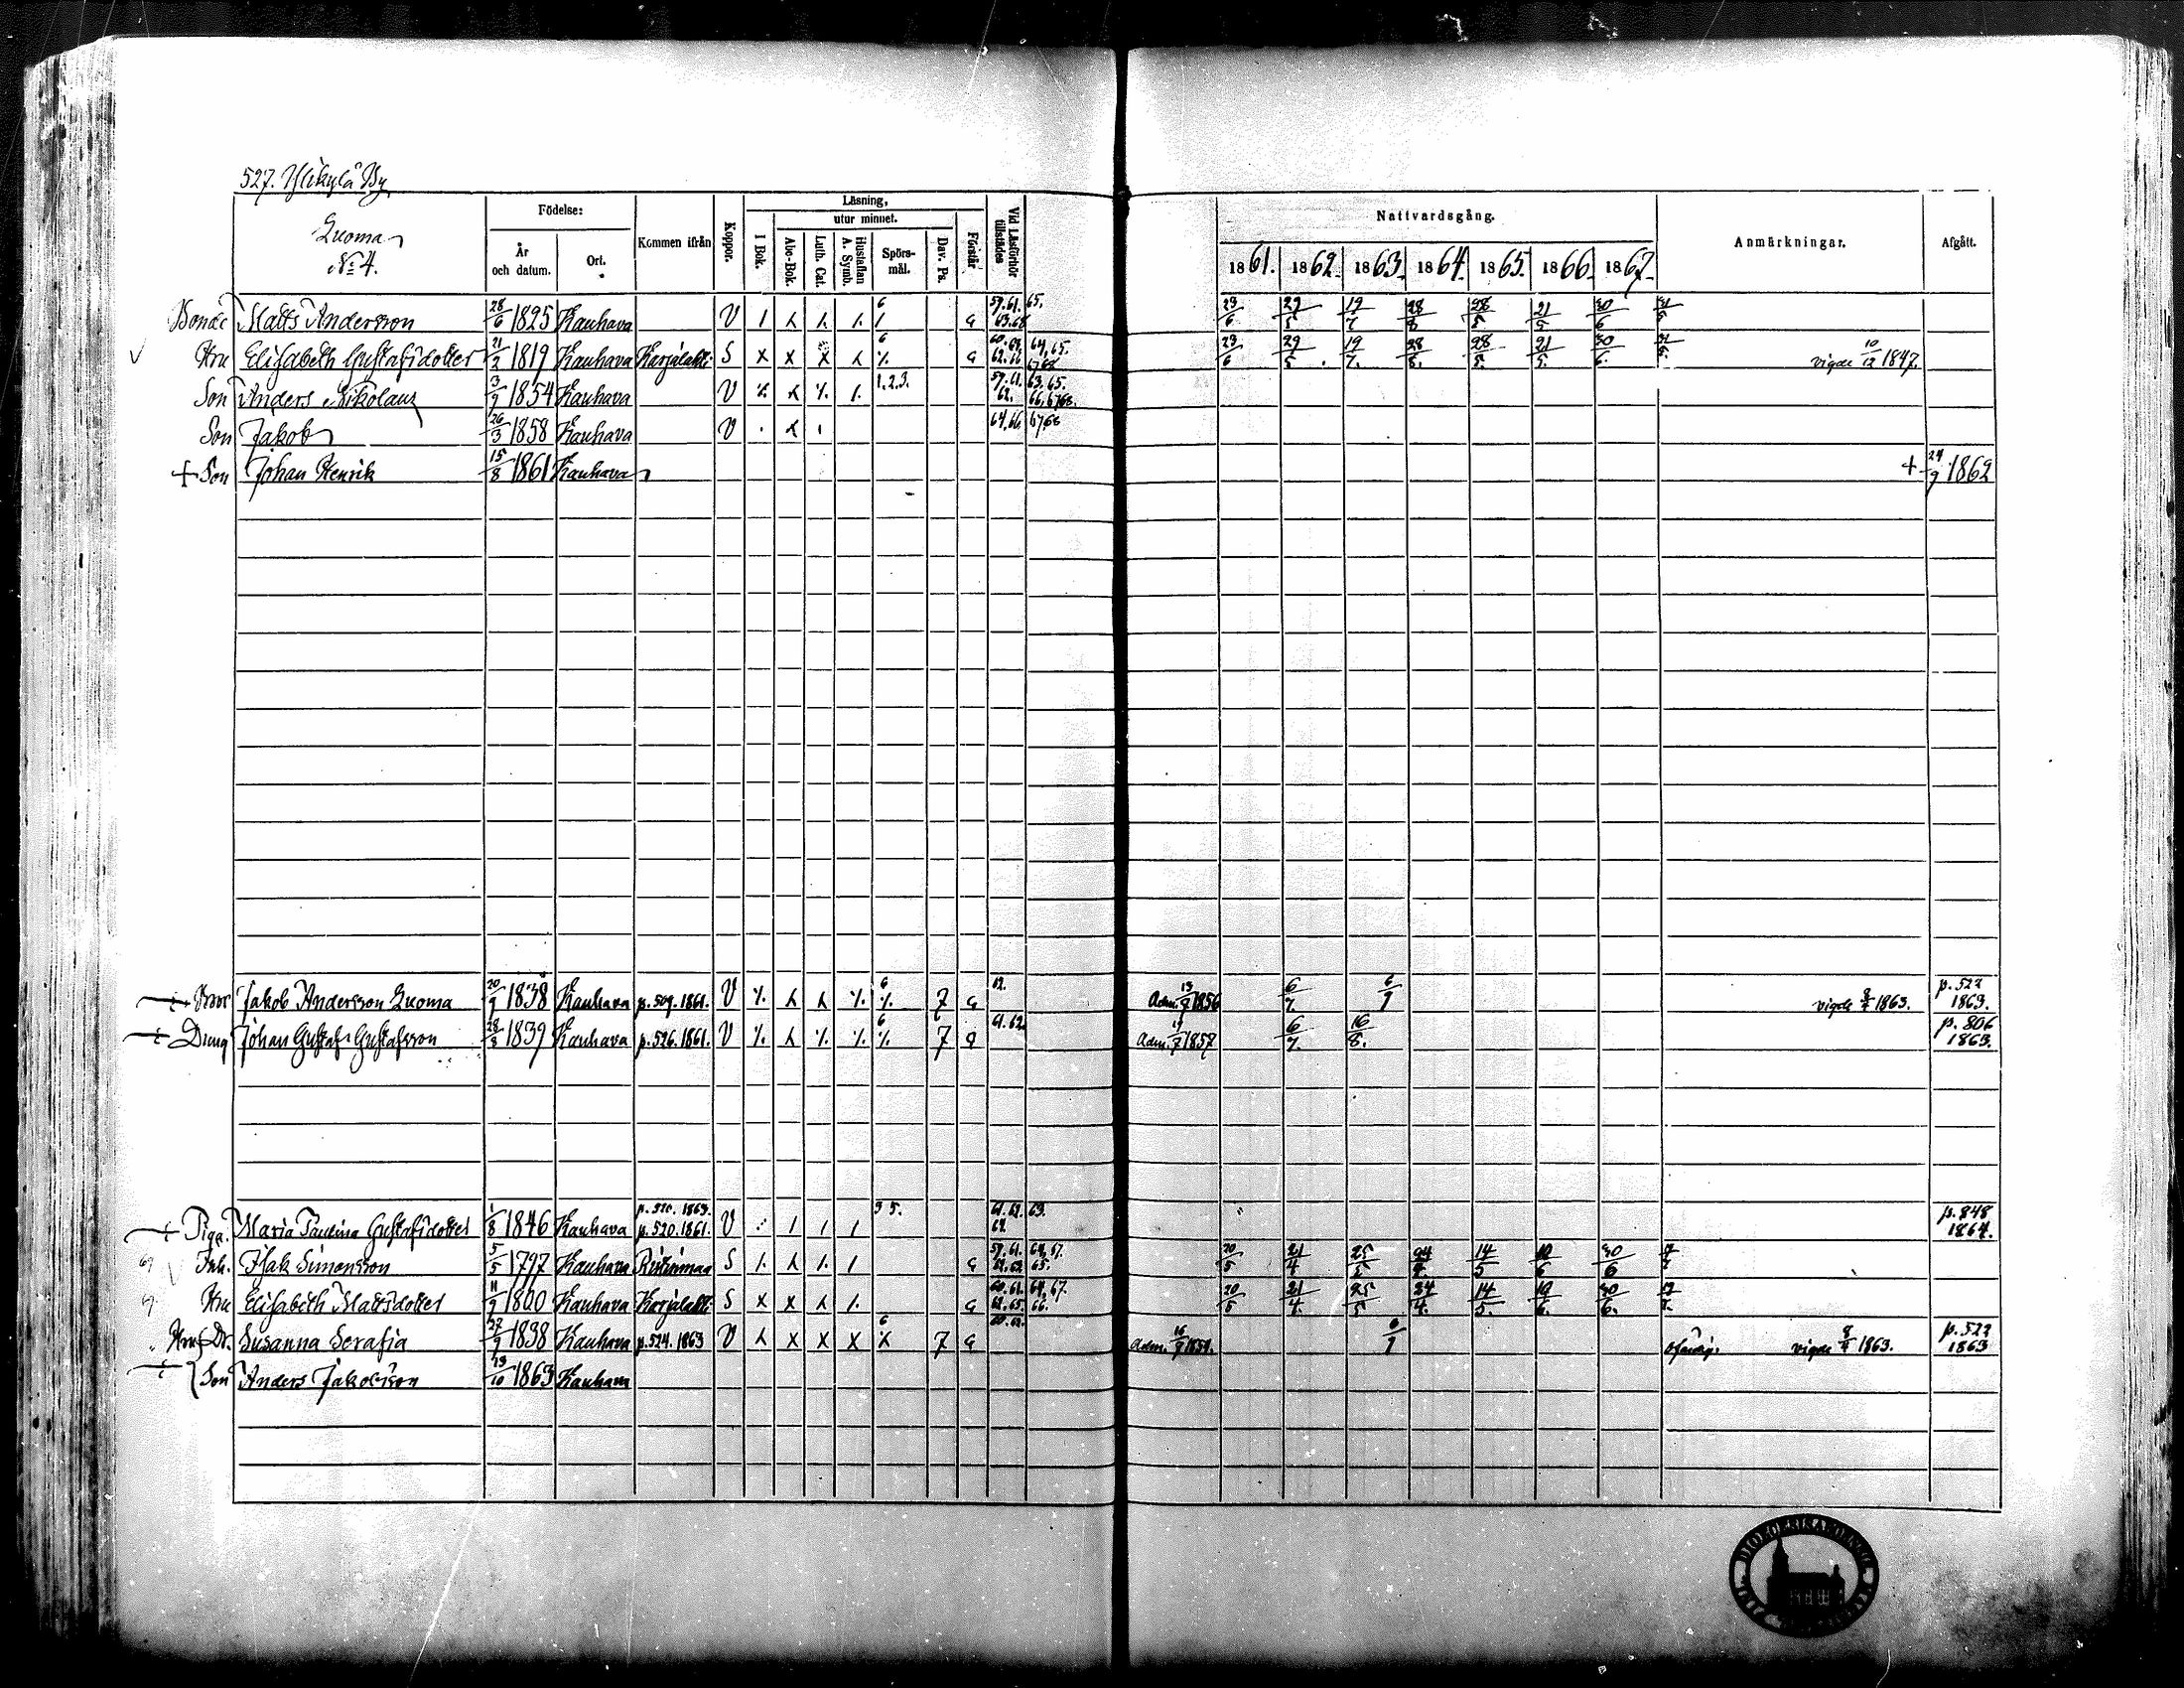 527. Ylikylä By
Luoma
No 4.
Födelse:
År och datum.
Ort.
Kommen ifrån
Koppor.
Läsning,
I Bok.
utur minnet.
Abc-Bok.
Luth. Cat.
Hustaflan A. Symb.
Spörs-mål.
Dav. Ps.
Förstår
Vid Läsförhör tillstädes
Nattvardsgång.
1861. 1862. 1863. 1864. 1865. 1866. 1867.
Anmärkningar.
Afgått.
Bonde Matts Andersson 28/6 1825 Kauhava V 6 59.61. 65. 63.68 29/5 19/7 28/5 21/5 30/6
Hru Elisabeth Gustafsdotter 21/2 1819 Kauhava Karjalahti S x x x 6 64,65. 29/5 19/7. 28/5. 21/5. 30/6. vigde 10/12 1847.
Son Anders Nikolaus 3/9 1854 Kauhava V 1.2.3. 59.61. 63.65. 62. 66,6768.
Son Jakob 26/3 1858 Kauhava V 64,66 6768
+ Son Johan Henrik 15/8 1861 Kauhava + 24/9 1862
Jakob Andersson Luoma 20/9 1838 Kauhava p.509.1861. V 6 7 Adm. 1856 6/7. 6/9 vigde 1863. p.522 1863.
Dräng Johan Gustaf Gustafsson 28/8 1839 Kauhava p.526.1861. V 6 7 61.62 Adm. 1857 6/7. 16/8. p.806 1863.
Piga. Maria Paulina Gustafsdotter 1/8 1846 Kauhava p.520.1861. V 3 5. 61.62. 63. p.848 1864.
Inh. Isak Simonsson 5/5 1797 Kauhava Riskinmaa S 59.61. 20/5 21/4 25/5 24/4. 14/5 10/6 30/6
Hru Elisabeth Mattsdotter 11/9 1800 Kauhava Karjalahti S x x 60.61. 64,67. 62.65. 66. 20/5 21/4. 25/5 24/4. 14/5. 10/6. 30/6.
Hru Dr. Susanna Serafia 27/9 1838 Kauhava p.524.1863 V x x x 6 7 Adm. 1854. 6/9 ofärdig. vigde 1863. p.522 1863
Son Anders Jakobsson 19/10 1863 Kauhava